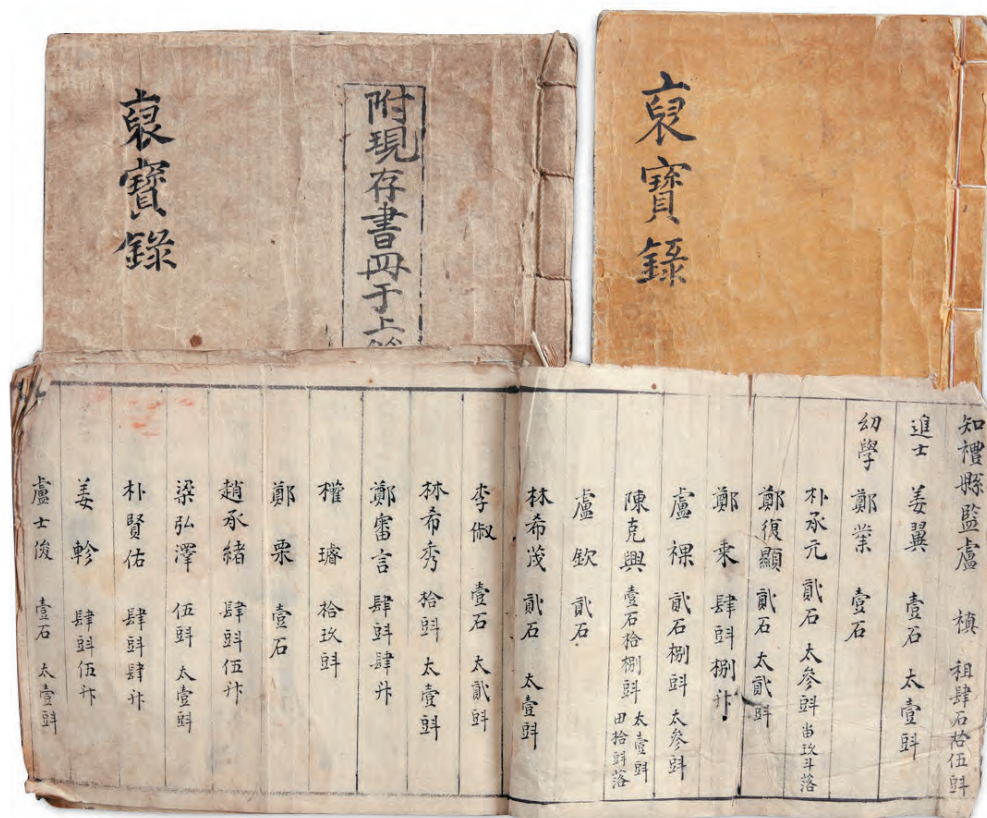 附現存書冊于上
裒寶錄
裒寶錄
知禮縣監盧 禛 租肆石拾伍㪷
進士 姜翼 壹石 太壹㪷
幼學 鄭業 壹石
朴承元 貳石 太參㪷 畓玖斗落
鄭復顯 貳石 太貳㪷
鄭 肆㪷捌升
盧祼 貳石捌㪷 太參㪷
陳克興 壹石拾捌㪷 太壹㪷 田拾㪷落
盧欽 貳石
林希茂 貳石 太壹㪷
李俶 壹石 太貳㪷
林希秀 拾㪷 太壹㪷
鄭審言 肆㪷肆升
權璿 拾玖㪷
鄭栗 壹石
趙承緒 肆㪷伍升
梁弘澤 伍㪷 太壹㪷
朴賢佑 肆㪷肆升
姜軫 肆㪷伍升
盧士俊 壹石 太壹㪷